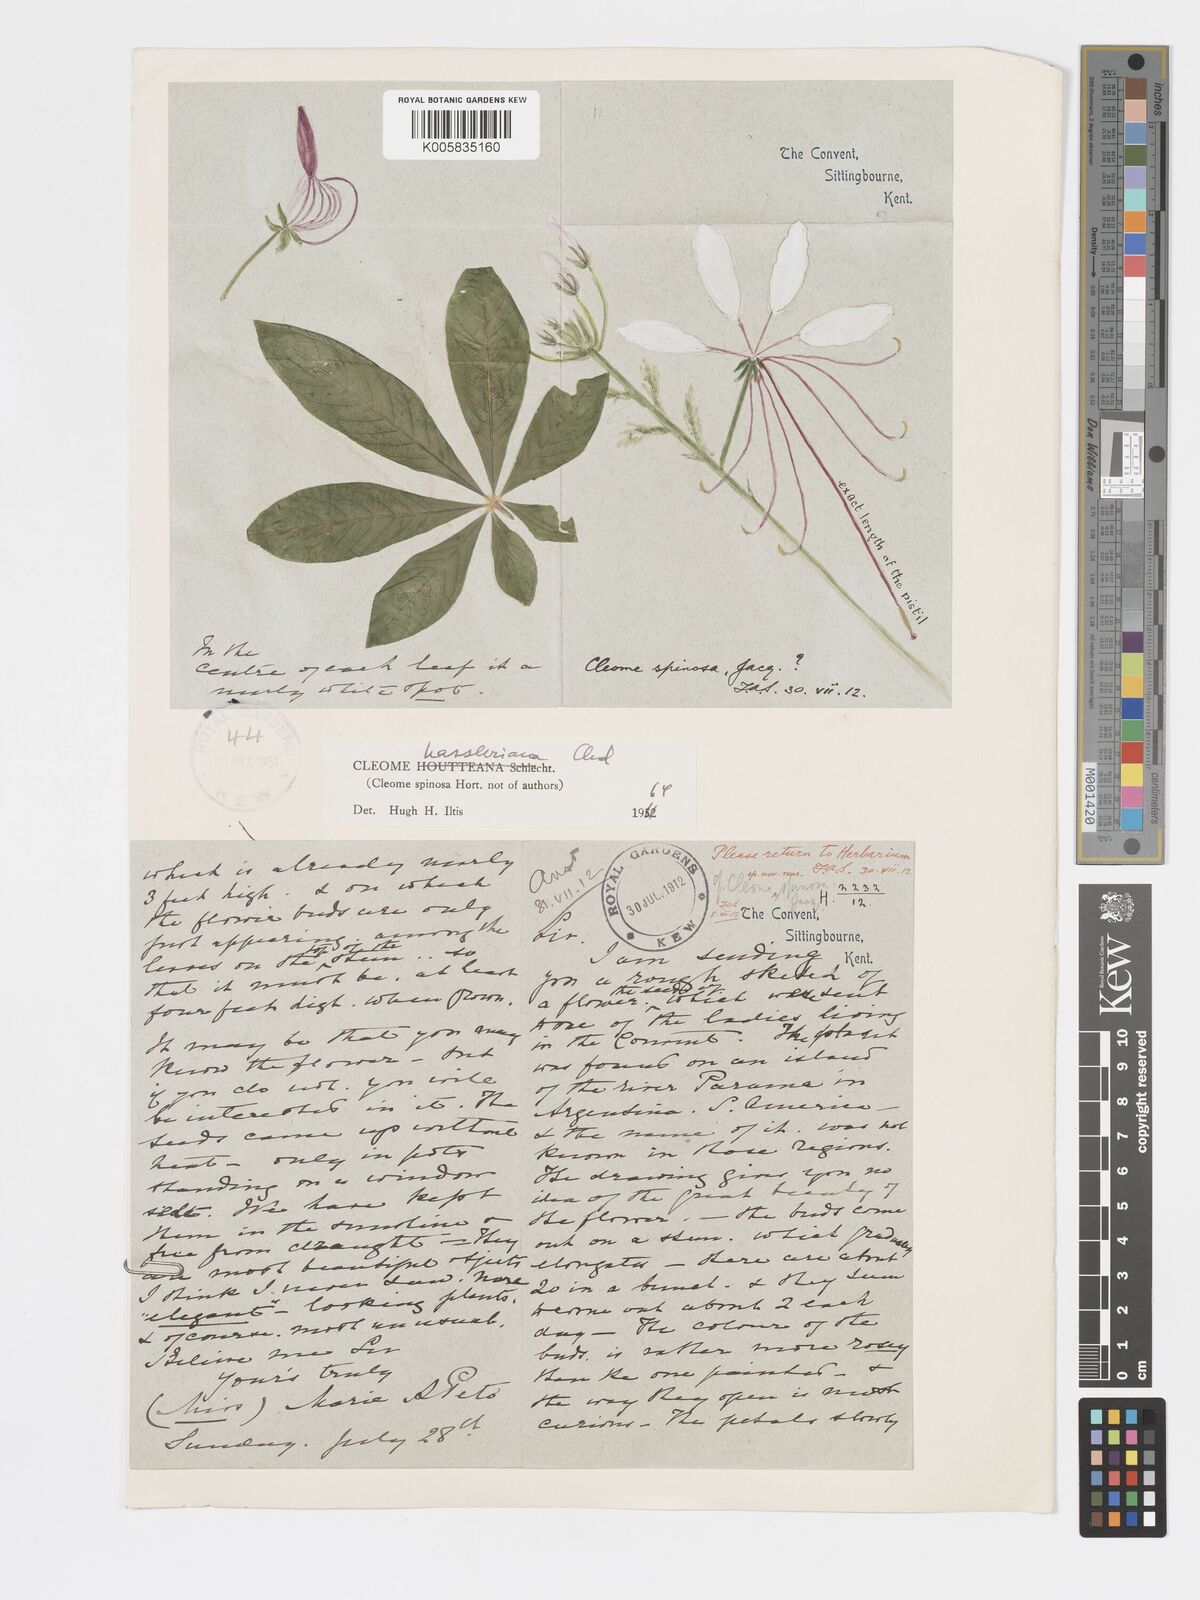 ROYAL BOTANIC GARDENS KEW
K005835160
The Convent,
Sittingbourne,
Kent.
exact length of the pistil
In the
centre of each leaf is a
nearly white spot.
Cleome spinosa, Jacq. ?
30. vii. 12.
44
8 DEC 1951
KEW
hassleriana Chod
CLEOME HOUTTEANA Schlecht.
(Cleome spinosa Hort. not of authors)
Det. Hugh H. Iltis
1952
64
which is already nearly
3 feet high. & on which
the flower buds are only
just appearing among the
leaves on the top of the stem .. so
that it must be. at least
four feet high. when grown.
It may be that you may
know the flower - but
if you do not. you will
be interested in it. The
seeds came up without
heat - only in pots
standing on a window
We have kept
them in the sunshine &
free from draught - They
are most beautiful objects
I think I never saw. more
"elegant" - looking plants.
& of course. most unusual.
Believe me Sir
Yours truly
(Miss) Marie A Peto
Sunday. July 28th
31.VII.12
ROYAL GARDENS
30 JUL 1912
KEW
Please return to Herbarium
30.vii.12
H. 2232
12.
The Convent,
Sittingbourne,
Kent.
Sir.
I am sending
you a rough sketch of
a flower. the seeds of which were sent
to one of the ladies living
in the Convent. The plant
was found on an island
of the river Parana in
Argentina. S. America -
& the name of it. was not
known in those regions.
The drawing gives you no
idea of the great beauty of
the flower. - the buds come
out on a stem. which gradually
elongates - there are about
20 in a bunch. & they seem
to come out about 2 each
day - The colour of the
buds. is rather more rosey
than the one painted - &
the way they open is most
curious - The petals slowly
DSG Image Reproduction Only, 2 degree observer
inches
Density
Don Williams
M001420
Royal Botanic Gardens
Kew
0 1 2 3 4 5 6 7 8 9 10
cm
copyright reserved